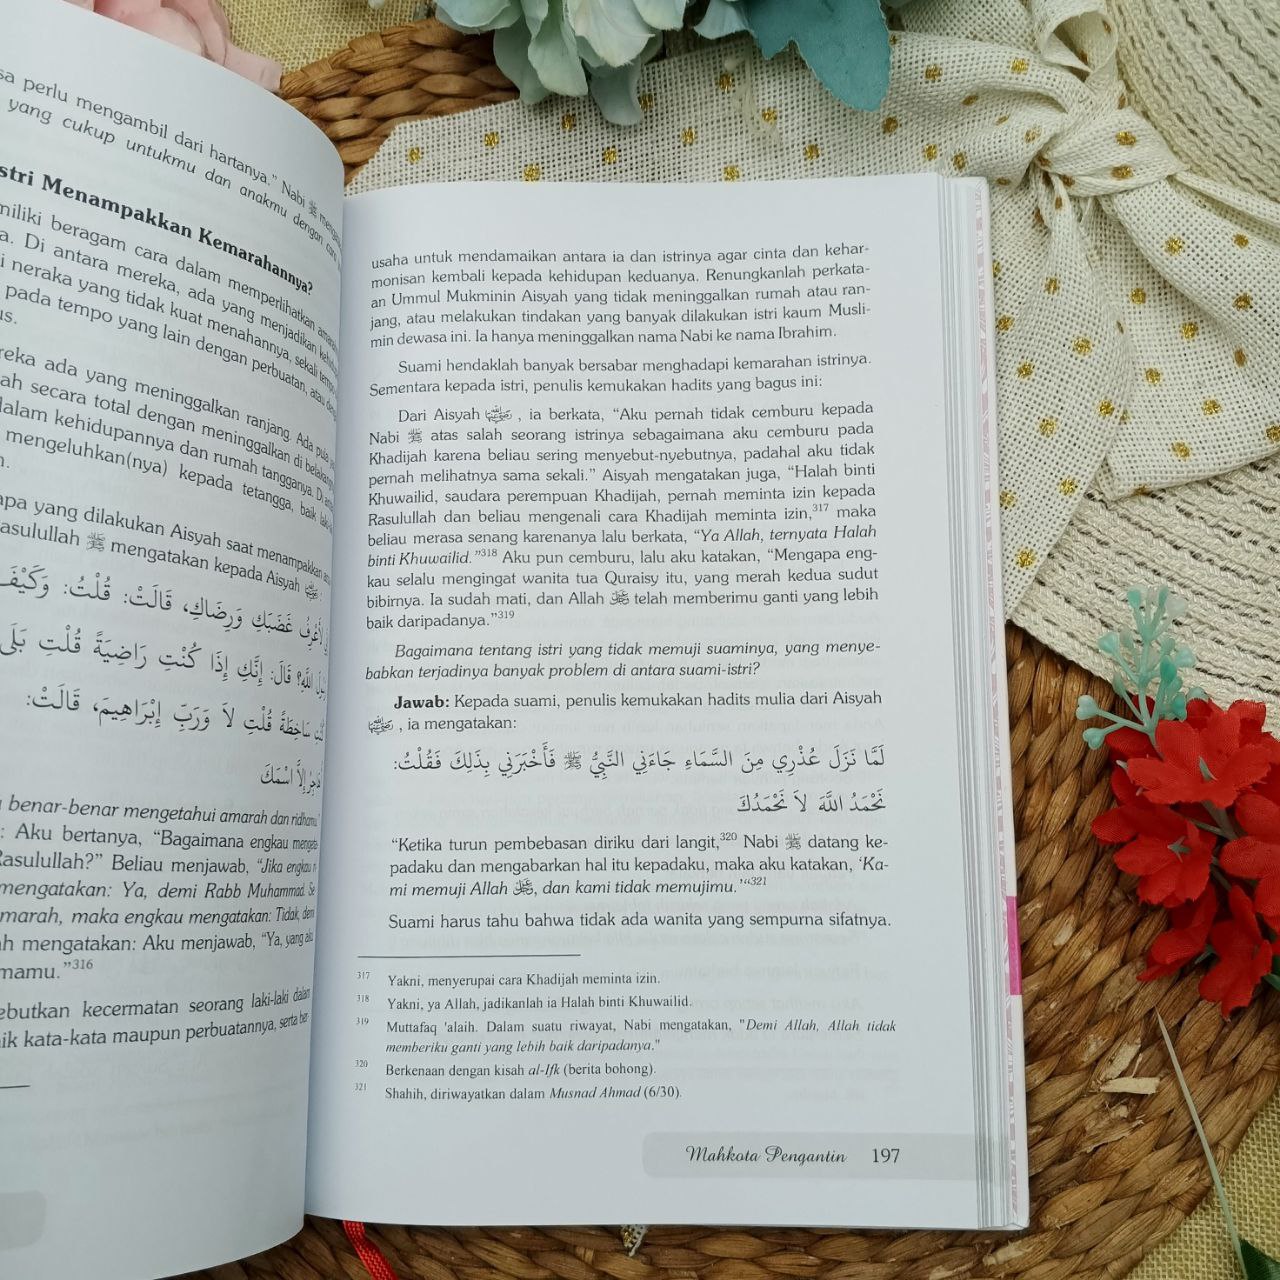 sa perlu mengambil dari hartanya.” Nabi ﷺ
yang cukup untukmu dan anakmu dengan cara
stri Menampakkan Kemarahannya?
miliki beragam cara dalam memperlihatkan
a. Di antara mereka, ada yang menjadikan
i neraka yang tidak kuat menahannya, sekali
pada tempo yang lain dengan perbuatan, atau
us.
reka ada yang meninggalkan ranjang. Ada pula
ah secara total dengan meninggalkan di
dalam kehidupannya dan rumah tangganya. Di
mengeluhkan(nya) kepada tetangga, baik
n.
apa yang dilakukan Aisyah saat menampakkan
asulullah ﷺ mengatakan kepada Aisyah :
لَأَعْرِفُ غَضَبَكِ وَرِضَاكِ، قَالَتْ: قُلْتُ: وَكَيْفَ
اللهِ؟ قَالَ: إِنَّكِ إِذَا كُنْتِ رَاضِيَةً قُلْتِ بَلَى
سَاخِطَةً قُلْتِ لاَ وَرَبِّ إِبْرَاهِيمَ، قَالَتْ:
إِلاَّ اسْمَكَ
benar-benar mengetahui amarah dan ridhamu.”
: Aku bertanya, “Bagaimana engkau
Rasulullah?” Beliau menjawab, “Jika engkau
mengatakan: Ya, demi Rabb Muhammad.
marah, maka engkau mengatakan: Tidak,
ah mengatakan: Aku menjawab, “Ya, yang
mamu.”316
ebutkan kecermatan seorang laki-laki dalam
ik kata-kata maupun perbuatannya, serta
usaha untuk mendamaikan antara ia dan istrinya agar cinta dan kehar-
monisan kembali kepada kehidupan keduanya. Renungkanlah perkata-
an Ummul Mukminin Aisyah yang tidak meninggalkan rumah atau ran-
jang, atau melakukan tindakan yang banyak dilakukan istri kaum Musli-
min dewasa ini. Ia hanya meninggalkan nama Nabi ke nama Ibrahim.
Suami hendaklah banyak bersabar menghadapi kemarahan istrinya.
Sementara kepada istri, penulis kemukakan hadits yang bagus ini:
Dari Aisyah , ia berkata, “Aku pernah tidak cemburu kepada
Nabi ﷺ atas salah seorang istrinya sebagaimana aku cemburu pada
Khadijah karena beliau sering menyebut-nyebutnya, padahal aku tidak
pernah melihatnya sama sekali.” Aisyah mengatakan juga, “Halah binti
Khuwailid, saudara perempuan Khadijah, pernah meminta izin kepada
Rasulullah dan beliau mengenali cara Khadijah meminta izin,317 maka
beliau merasa senang karenanya lalu berkata, “Ya Allah, ternyata Halah
binti Khuwailid.”318 Aku pun cemburu, lalu aku katakan, “Mengapa eng-
kau selalu mengingat wanita tua Quraisy itu, yang merah kedua sudut
bibirnya. Ia sudah mati, dan Allah telah memberimu ganti yang lebih
baik daripadanya.”319
Bagaimana tentang istri yang tidak memuji suaminya, yang menye-
babkan terjadinya banyak problem di antara suami-istri?
Jawab: Kepada suami, penulis kemukakan hadits mulia dari Aisyah
, ia mengatakan:
لَمَّا نَزَلَ عُذْرِي مِنَ السَّمَاءِ جَاءَنِي النَّبِيُّ ﷺ فَأَخْبَرَنِي بِذَلِكَ فَقُلْتُ:
نَحْمَدُ اللَّهَ لاَ نَحْمَدُكَ
“Ketika turun pembebasan diriku dari langit,320 Nabi ﷺ datang ke-
padaku dan mengabarkan hal itu kepadaku, maka aku katakan, ‘Ka-
mi memuji Allah , dan kami tidak memujimu.’“321
Suami harus tahu bahwa tidak ada wanita yang sempurna sifatnya.
317 Yakni, menyerupai cara Khadijah meminta izin.
318 Yakni, ya Allah, jadikanlah ia Halah binti Khuwailid.
319 Muttafaq 'alaih. Dalam suatu riwayat, Nabi mengatakan, "Demi Allah, Allah tidak
memberiku ganti yang lebih baik daripadanya."
320 Berkenaan dengan kisah al-Ifk (berita bohong).
321 Shahih, diriwayatkan dalam Musnad Ahmad (6/30).
Mahkota Pengantin 197